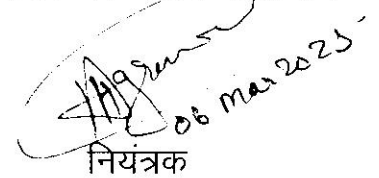 06 Mar 2025
नियंत्रक